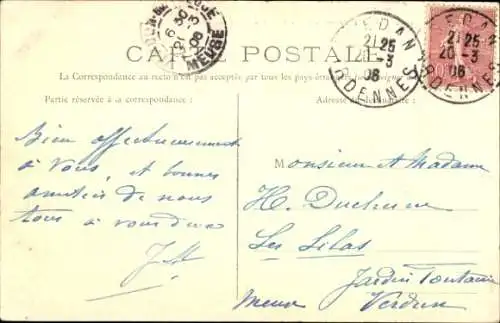 CARTE POSTALE
La Correspondance au recto n'est pas acceptée par tous les pays étrangers
Partie réservée à sa correspondance :
Bien affectueusement
à vous, et bonnes
amitiés de nous
tous à vous deux
SEDAN
21 25
20 -3
08
ARDENNES
SEDAN
21 25
20 -3
08
ARDENNES
6 30
-3
08
MEUSE
Monsieur et Madame
H. Duchesne
Les Lilas
Jardin Fontaine
Verdun
Meuse